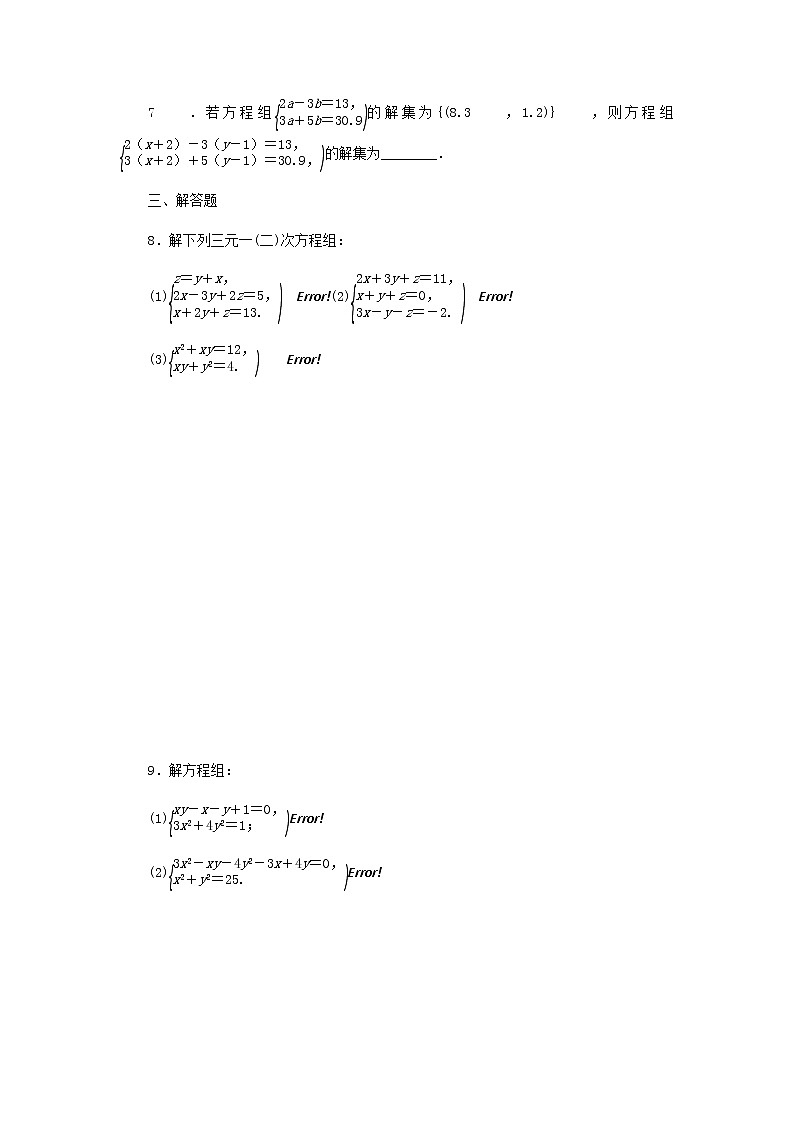 7 .若方程组{2a－3b＝13，3a＋5b＝30.9)的解集为{(8.3 ，1.2)} ，则方程组
{2（x＋2）－3（y－1）＝13，3（x＋2）＋5（y－1）＝30.9，)的解集为________．
三、解答题
8．解下列三元一(二)次方程组：
(1){z＝y＋x，2x－3y＋2z＝5，x＋2y＋z＝13.) Error!(2){2x＋3y＋z＝11，x＋y＋z＝0，3x－y－z＝－2.) Error!
(3){x²＋xy＝12，xy＋y²＝4.) Error!
9．解方程组：
(1){xy－x－y＋1＝0，3x²＋4y²＝1；)Error!
(2){3x²－xy－4y²－3x＋4y＝0，x²＋y²＝25.)Error!